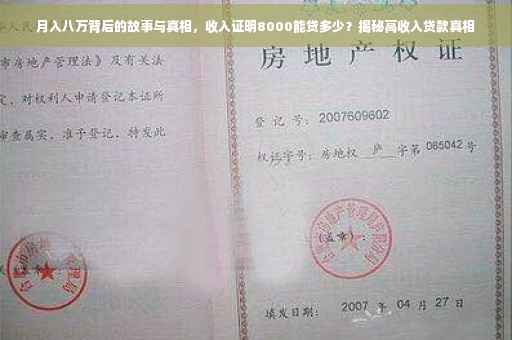 月入八万背后的故事与真相，收入证明8000能贷多少？揭秘高收入贷款真相
市房地产管理法》及有关法
定，对权利人申请登记本证所
审查属实，准予登记，特发此
房地产
登 记 号：2007609602
权证字号：房地权 庐 字第 085042 号
（盖章）：
填发日期：2007 年 04 月 27 日